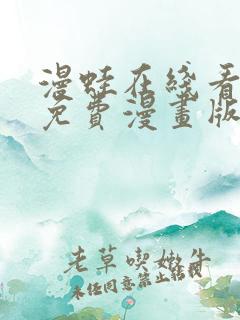 漫蛙在綫看
免費漫畫版
老草喫嫩牛
未经同意禁止转载